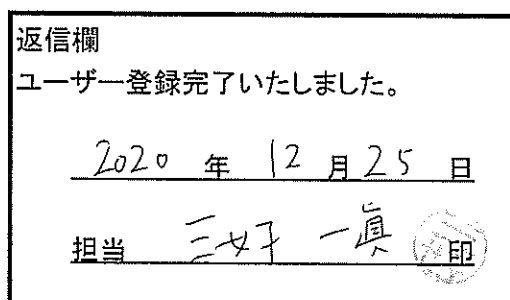 返信欄
ユーザー登録完了いたしました。
2020 年 12 月 25 日
担当 三好 一眞 印